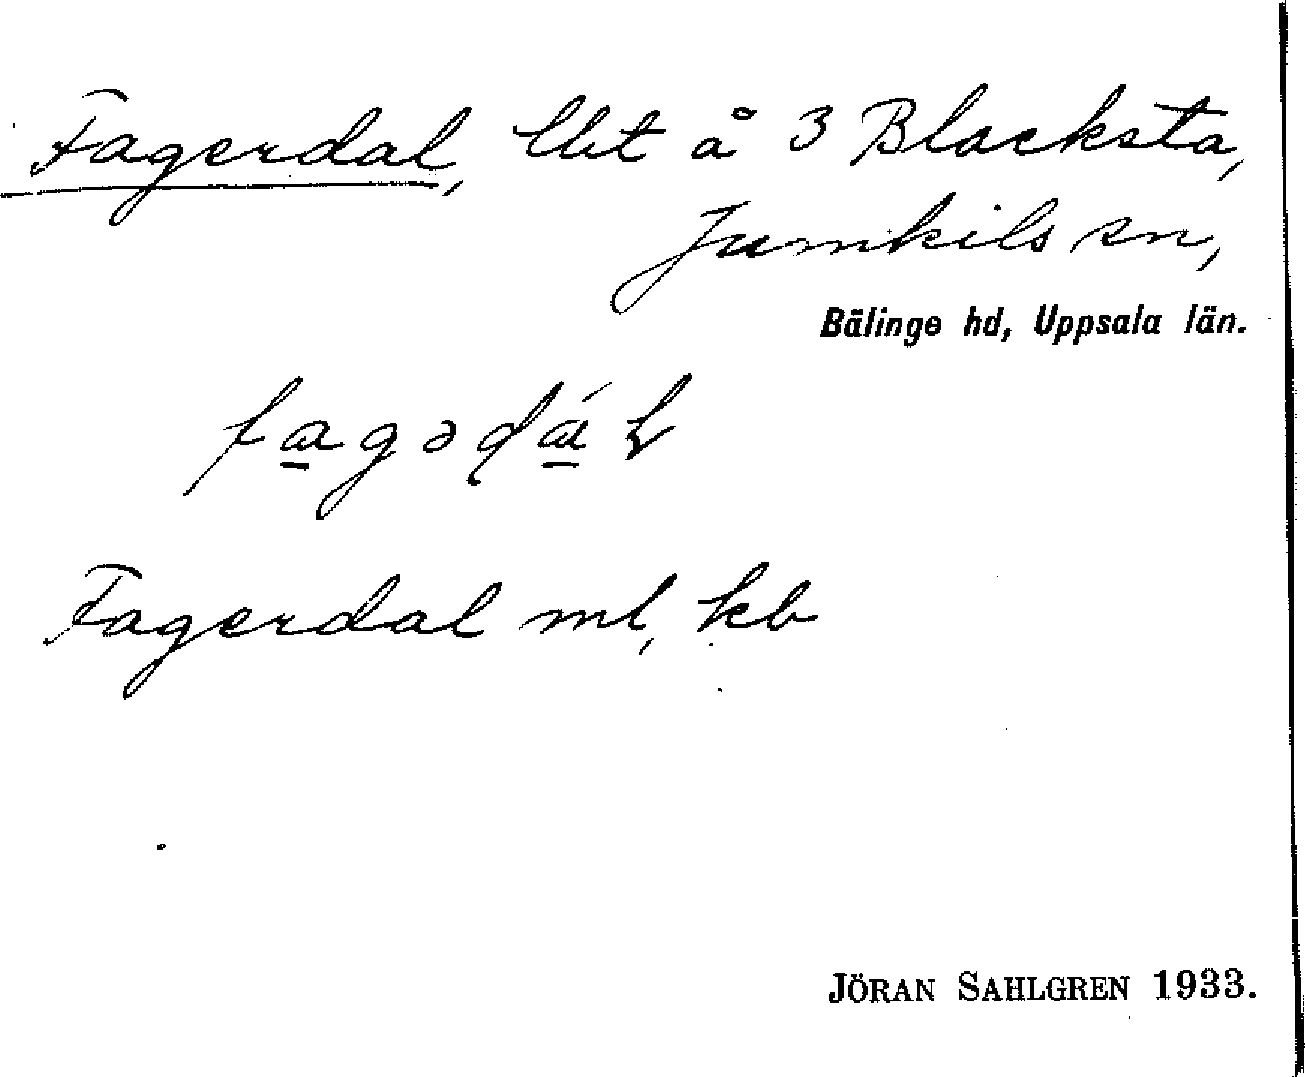 Fagerdal, lht å 3 Blacksta,
Jumkils sn,
Bälinge hd, Uppsala län.
Fagerdal ml, kb
JÖRAN SAHLGREN 1933.